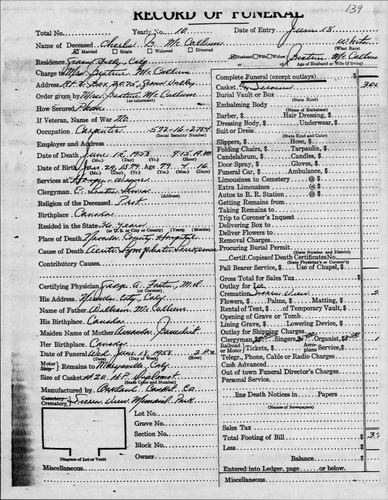 139
RECORD OF FUNERAL
Total No. Yearly No. 10 Date of Entry June 18
Name of Deceased Charles D. McCallum White
Married Single Widowed Divorced (What Race)
Residence Grass Valley, Calif. Husband Wife Widow Beatrice McCallum
Age of Husband or Wife (if living)
Charge to Mrs. Beatrice McCallum
Address Rt. 2 Box Grass Valley
Order given by Mrs. Beatrice McCallum
or Informant
How Secured Phone
If Veteran, Name of War No
Occupation Carpenter
(Social Security Number)
Employer and Address
Date of Death June 15, 1958
Date of Birth
Services at
Clergyman
Religion of the Deceased Prot.
Birthplace Canada
Resided in the State 36 years
(U. S. or City or County) (Years) (Months)
Place of Death Nevada County Hospital
Cause of Death Acute Lymphatic Leukemia
Contributory Causes
Certifying Physician George A. Foster, M.D.
His Address Nevada City, Calif.
Name of Father William McCallum
His Birthplace Canada
Maiden Name of Mother
Her Birthplace Canada
Date of Funeral Wed. June 18, 1958 2 P.M.
Motor Ship Remains to Marysville Calif.
Size of Casket
(State Color and Number)
Manufactured by Oakland Casket Co.
Cemetery
Crematory Sierra View Memorial Park
Lot No.
Grave No.
Section No.
Block No.
Owner
Diagram of Lot or Vault
Miscellaneous
Complete Funeral (except outlays)
Casket
Burial Vault or Box
(State Kind)
Embalming Body
(Name of Embalmer)
Barber, Hair Dressing,
Dressing Body, Underwear,
Suit or Dress
(State Kind and Color)
Slippers, Hose,
Folding Chairs, Tarpaulin,
Candelabrum, Candles,
Door Spray, Gloves,
Funeral Car, Ambulance,
Limousines to Cemetery @ $
Extra Limousines @ $
Autos to R. R. Station @ $
Getting Remains from
Taking Remains to
Trip to Coroner's Inquest
Delivering Box to
Deliver Flowers to
Removal Charges
Procuring Burial Permit
(State Number and District)
Certif. Copies of Death Certificates No.
(State Physician's or Coroner's)
Pall Bearer Service, Use of Chapel, $
Gross Total for Sales Tax
Outlay for Lot
Cremation Sierra View
Flowers, $ Palms, Matting,
Rental of Tent, $ of Temporary Vault,
Opening of Grave or Tomb
Lining Grave, Lowering Device,
Outlay for Shipping Charges
Clergyman Singers Organist,
Railroad or Motor Tickets, Service,
Telegr., Phone, Cable or Radio Charges
Cash Advanced
Out of town Funeral Director's Charges
Personal Service
line Death Notices in Papers
(Names of Newspapers)
Sales Tax
Total Footing of Bill $
Less
Balance $
Entered into Ledger, page or below.
Miscellaneous